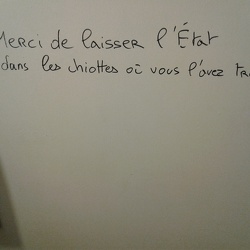 Merci de laisser l'État
dans les chiottes où vous l'avez